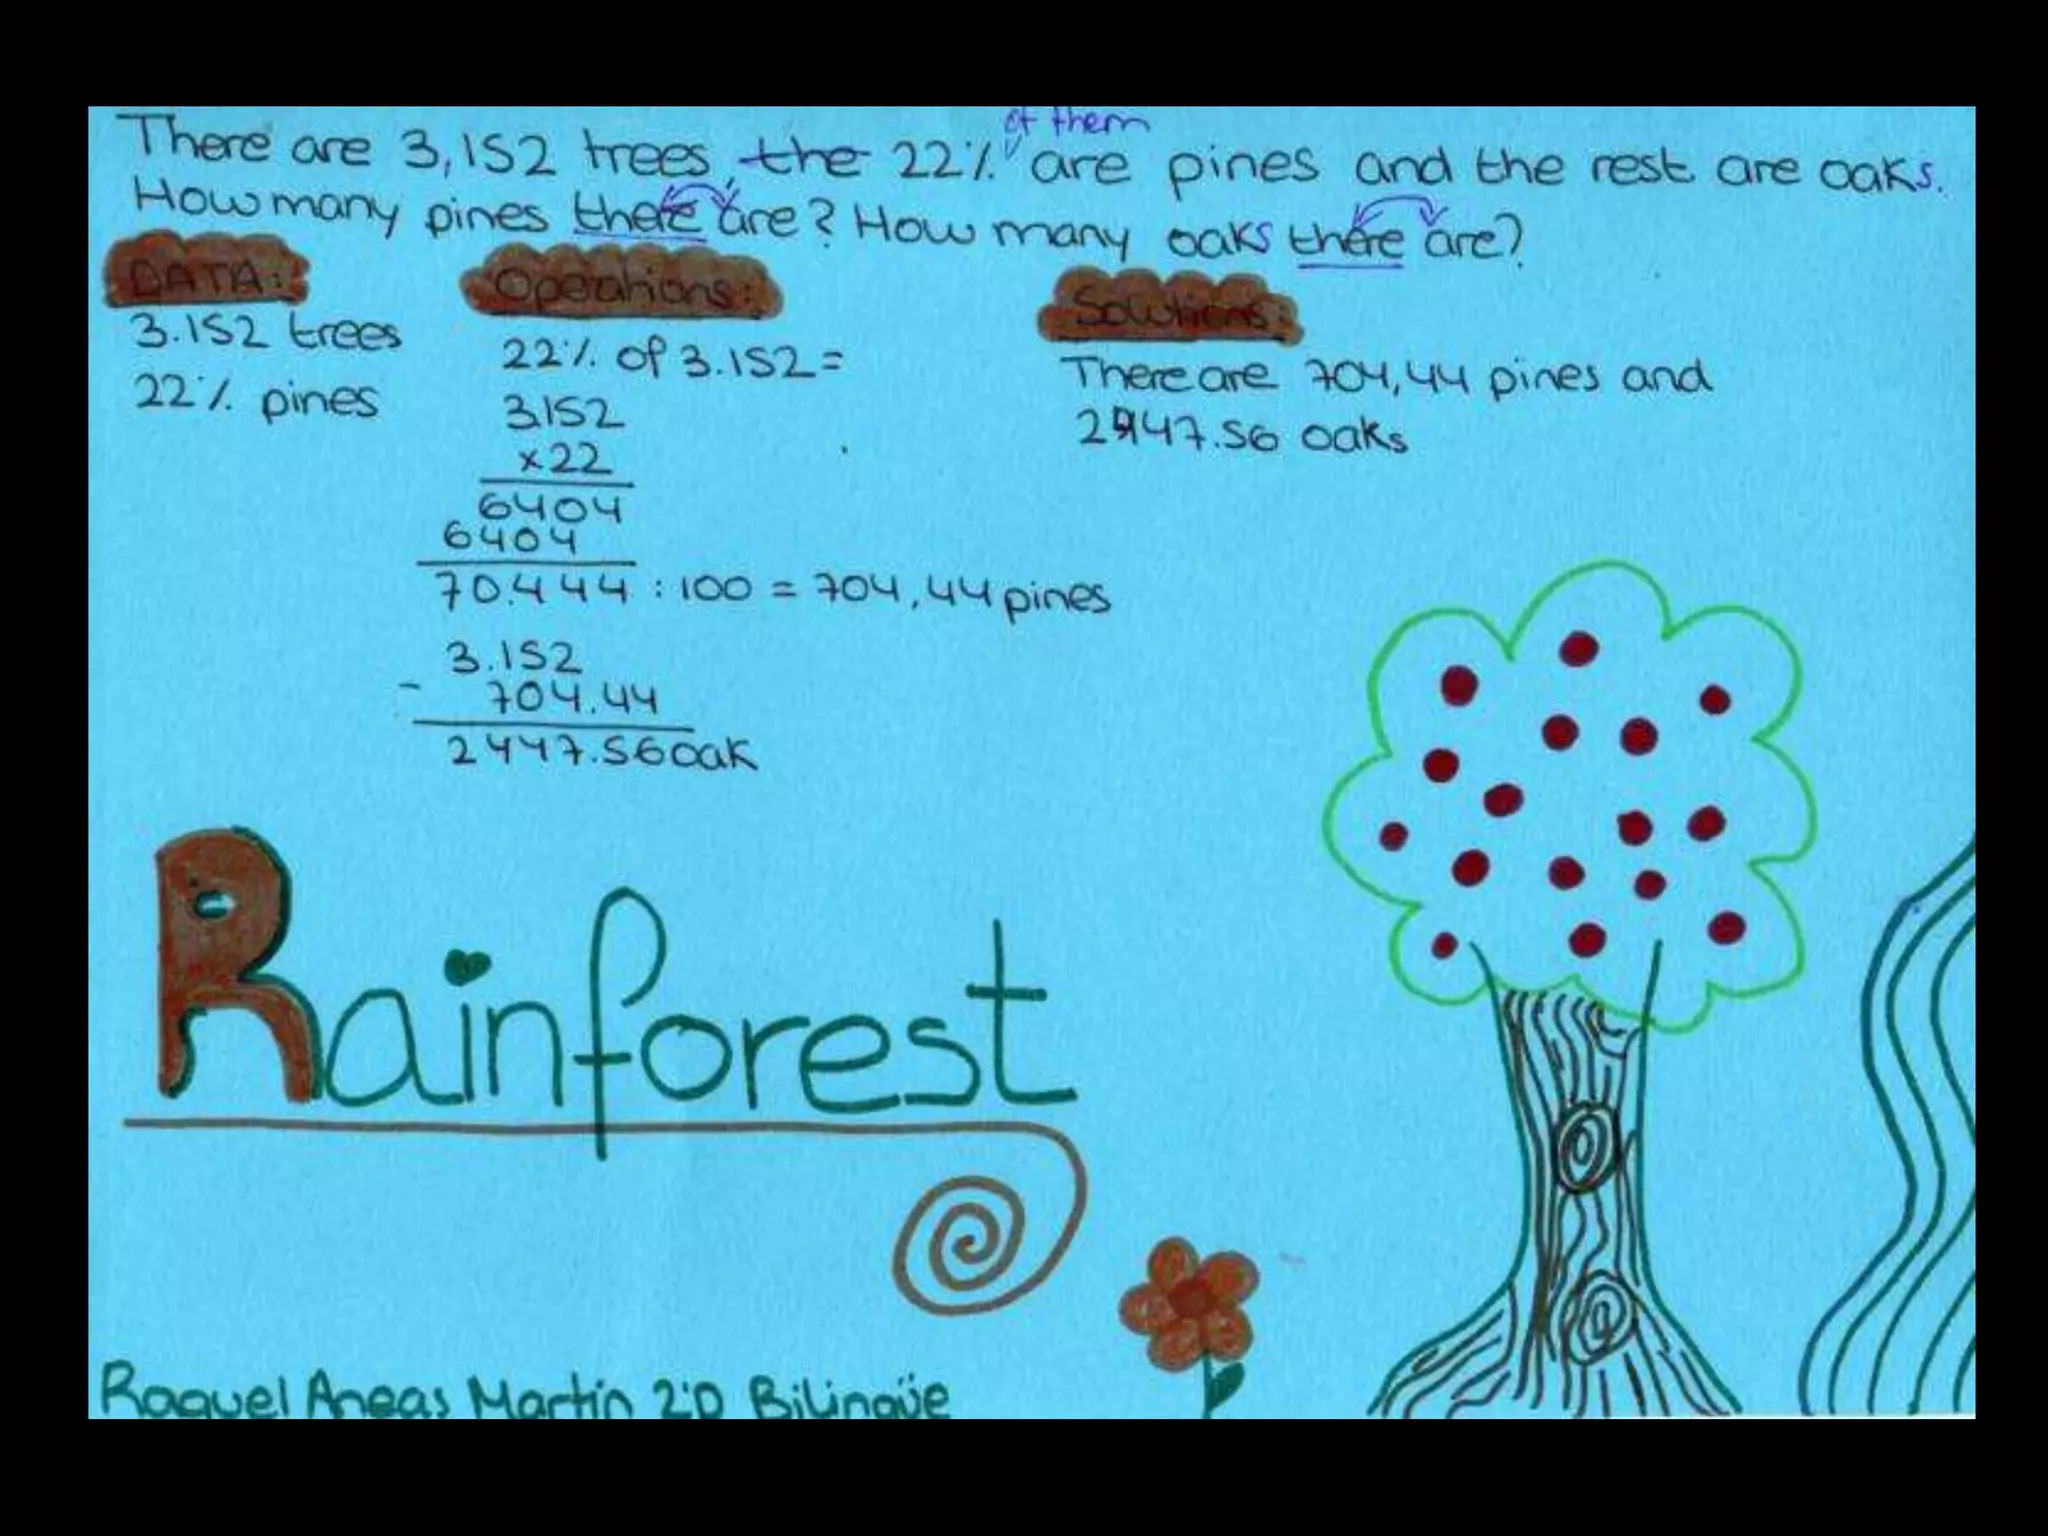 of them
There are 3,152 trees, the 22% are pines and the rest are oaks.
How many pines there are? How many oaks there are?
DATA:
3.152 trees
22% pines
Operations:
22% of 3.152=
3.152
x22
6404
6404
70.444 : 100 = 704,44 pines
3.152
- 704.44
2447.56 oak
Solutions:
There are 704,44 pines and
2447.56 oaks
Rainforest
Raquel Aneas Martín 2ºD Bilingüe